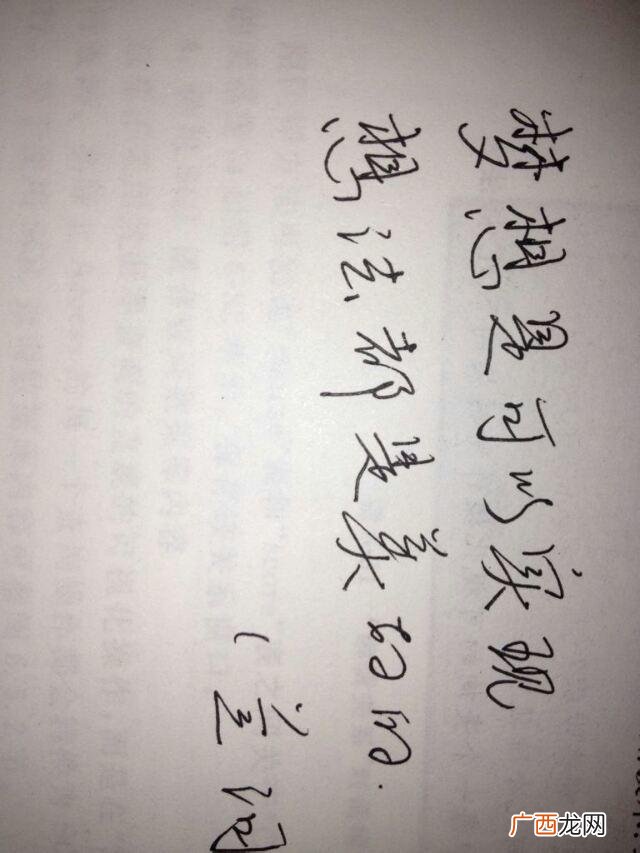 梦想是可以实现
想法都是美好的.
广西龙网